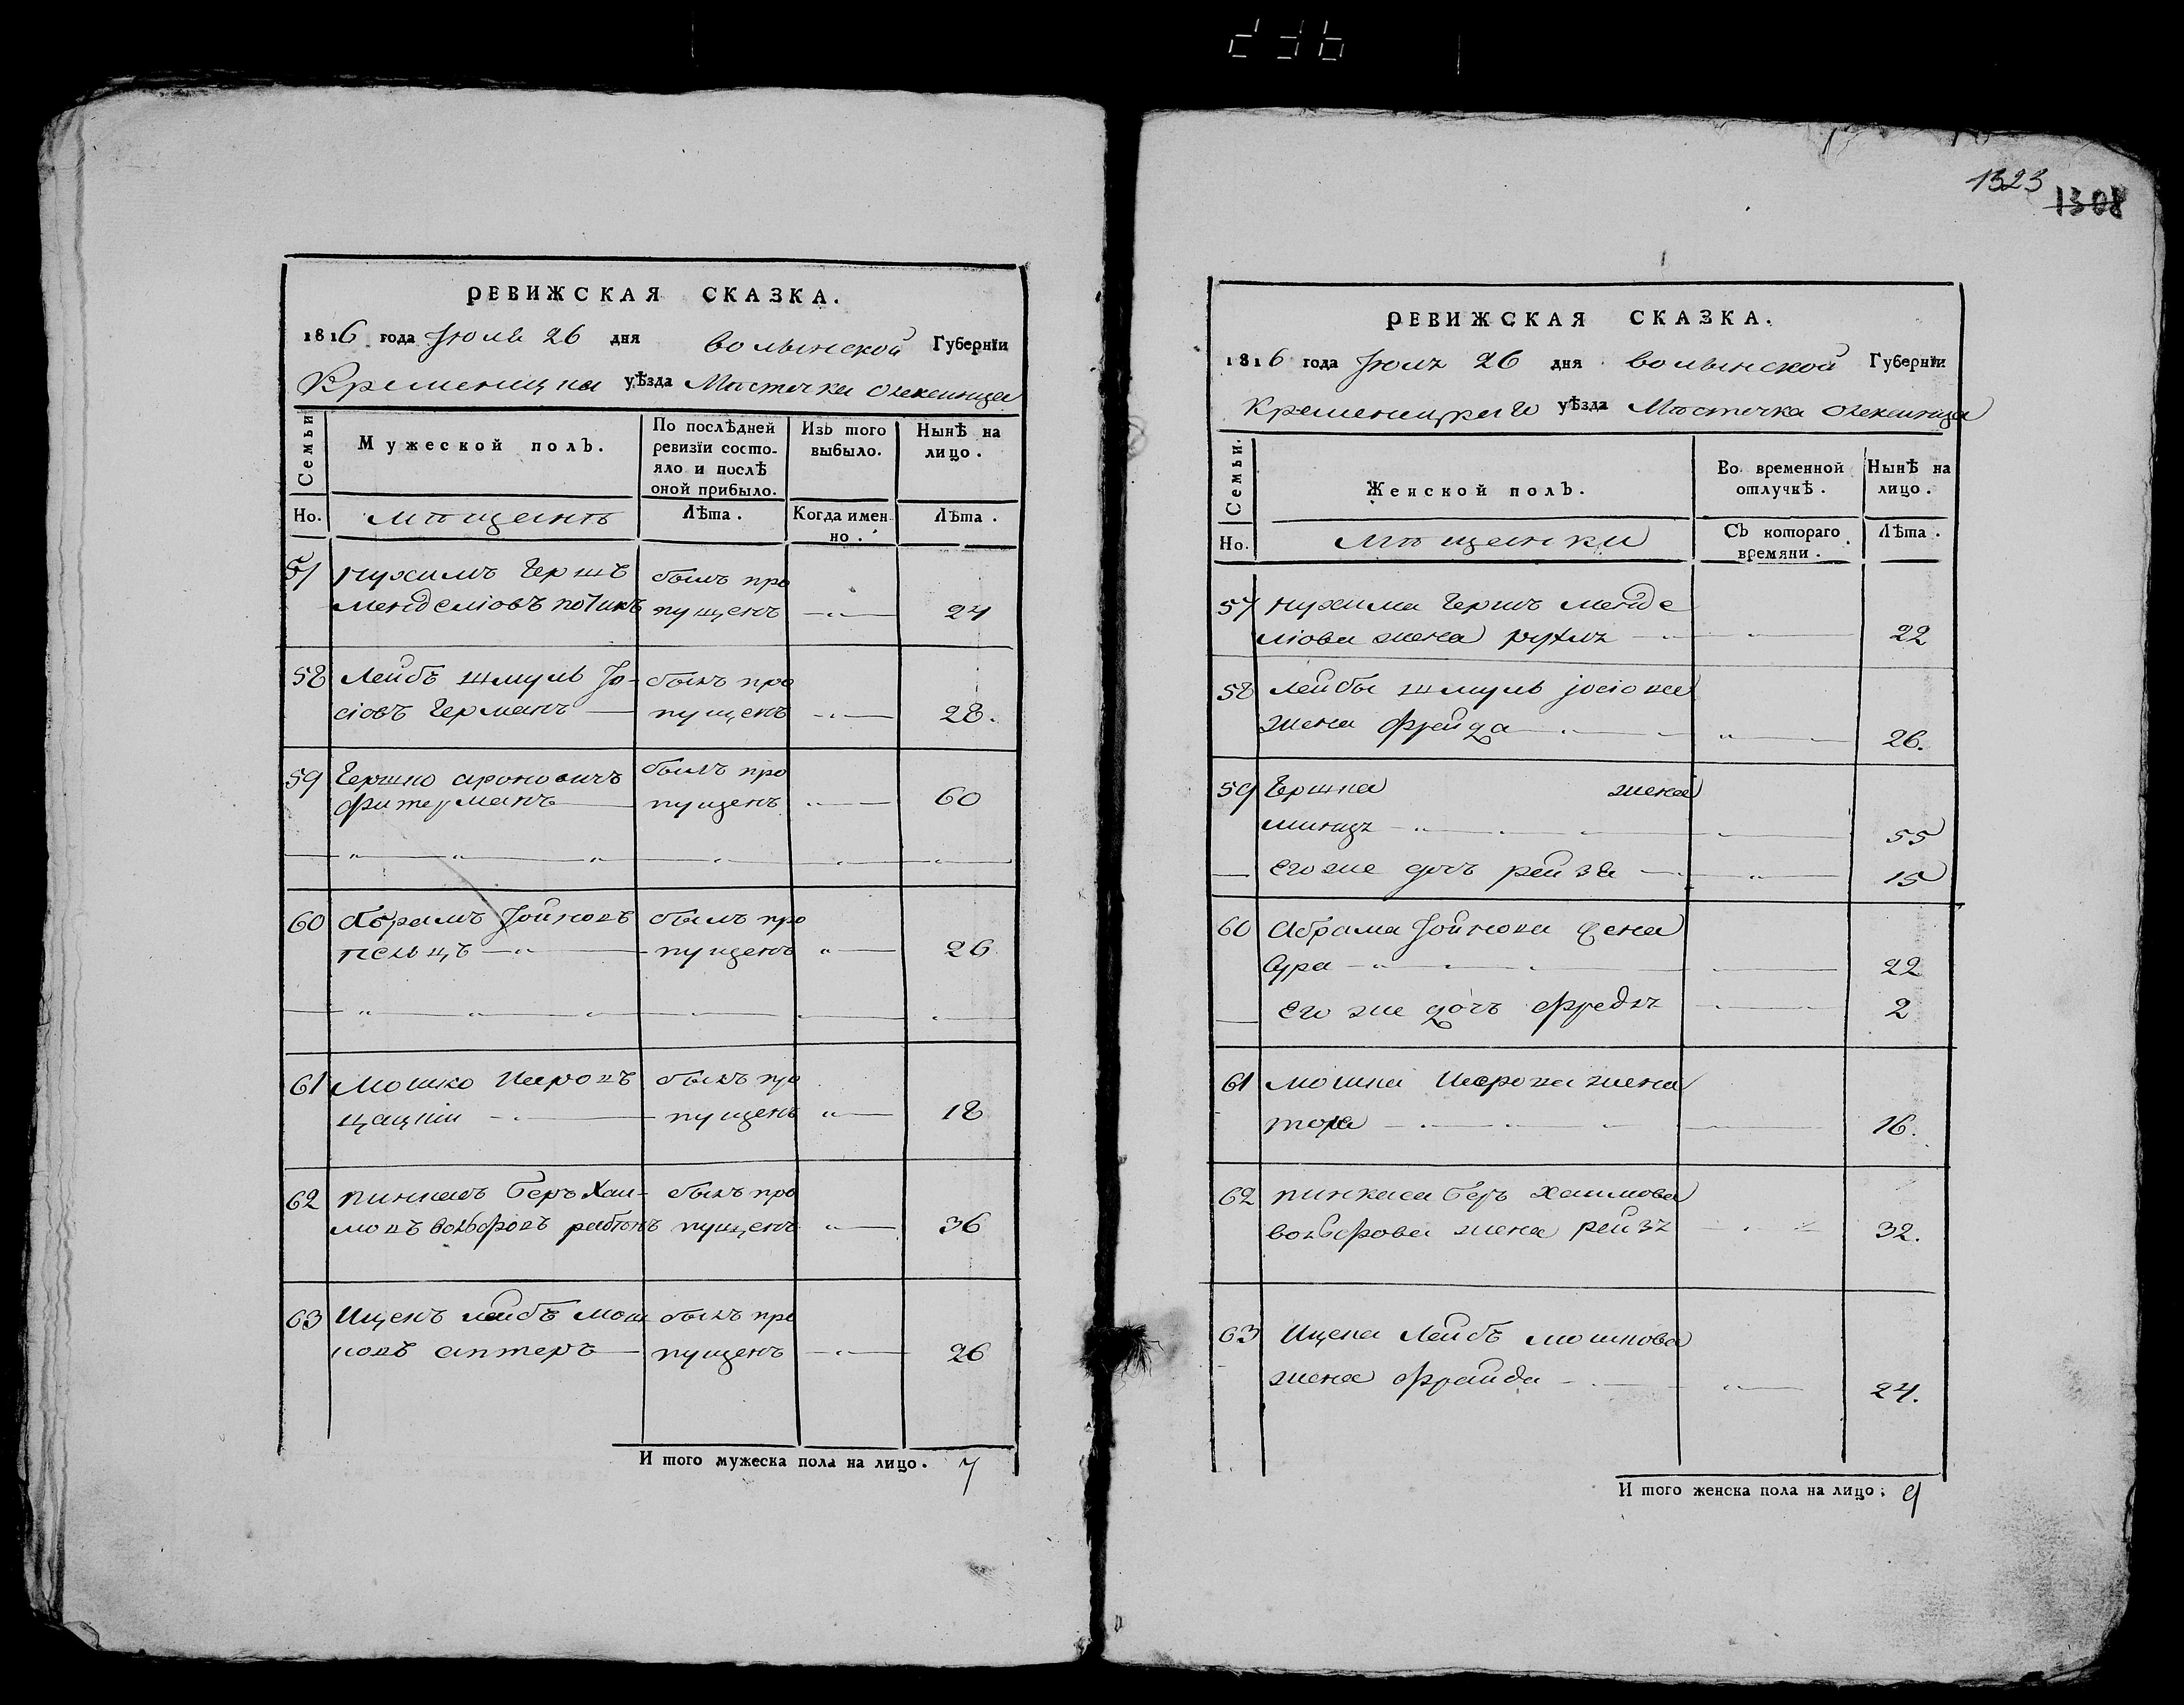 1323
1308
РЕВИЖСКАЯ СКАЗКА.
1816 года Июль 26 дня волынской Губернїи
Кременецка уѣзда Мѣстечка олексинца
Семьи
Мужеской полъ.
По послѣдней ревизїи состо-
яло и послѣ
оной прибыло.
Изъ того
выбыло.
Нынѣ на
лицо.
Но.
мѣщенъ
Лѣта.
Когда имен-
но.
Лѣта.
57 Нухимъ Гершъ былъ про
Менделіовъ пущенъ 24
58 Лейбъ шмуль Jо- былъ про
сіовъ Германъ пущенъ 28.
59 Гершко ароновичъ былъ про
фитерманъ пущенъ 60
60 Абрамъ Jойновъ былъ про
пельцъ пущенъ 26
61 Мошко былъ про
пущенъ 18
62 пинкасъ беръ Хаи- былъ про
мовъ пущенъ 36
63 Ицекъ лейбъ Мош былъ про
ковъ аптеръ пущенъ 26
И того мужеска пола на лицо. 7
РЕВИЖСКАЯ СКАЗКА.
1816 года Июль 26 дня волынской Губернїи
Кременецкаго уѣзда Мѣстечка олексинца
Семьи.
Женской полъ.
Во временной
отлучкѣ.
Нынѣ на
лицо.
Но.
мѣщенки
Съ котораго
времяни.
Лѣта.
57 нухима Гершъ менде
ліова жена рухль 22
58 лейбы шмуль josioва
жена фрейда 26.
59 Гершка жена
миндзъ 55
его же дочъ рейзя 15
60 Абрама Jойнова жена
Сура 22
его же дочъ фредль 2
61 мошка жена
16.
62 пинкаса беръ хаимова
жена рейзъ 32.
63 Ицека Лейбъ мошкова
жена фрайда 24.
И того женска пола на лицо: 9